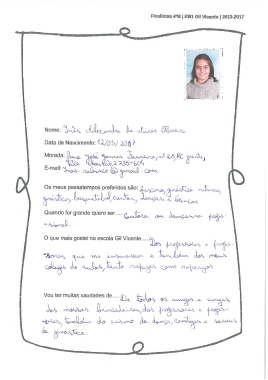 Finalistas 4ºB | EB1 Gil Vicente | 2013-2017
Nome: Inês
Data de Nascimento: 12/05/2007
Morada: Rua José Gomes Ferreira, nº 25, RC frente,
E-mail:
Os meus passatempos preferidos são: piscina, ginástica rítmica,
ginástica, basquetebol, cantar, dançar e brincar.
Quando for grande quero ser.... Cantora ou dançarina profis-
sional.
O que mais gostei na escola Gil Vicente.... dos professores e profes-
soras que me ensinaram e também dos meus
colegas de aulas, tanto rapazes como raparigas.
Vou ter muitas saudades de.... De todos os amigos e amigas
das nossas brincadeiras, dos professores e profes-
soras, também do ensino de dança, cantigas e
de ginástica.